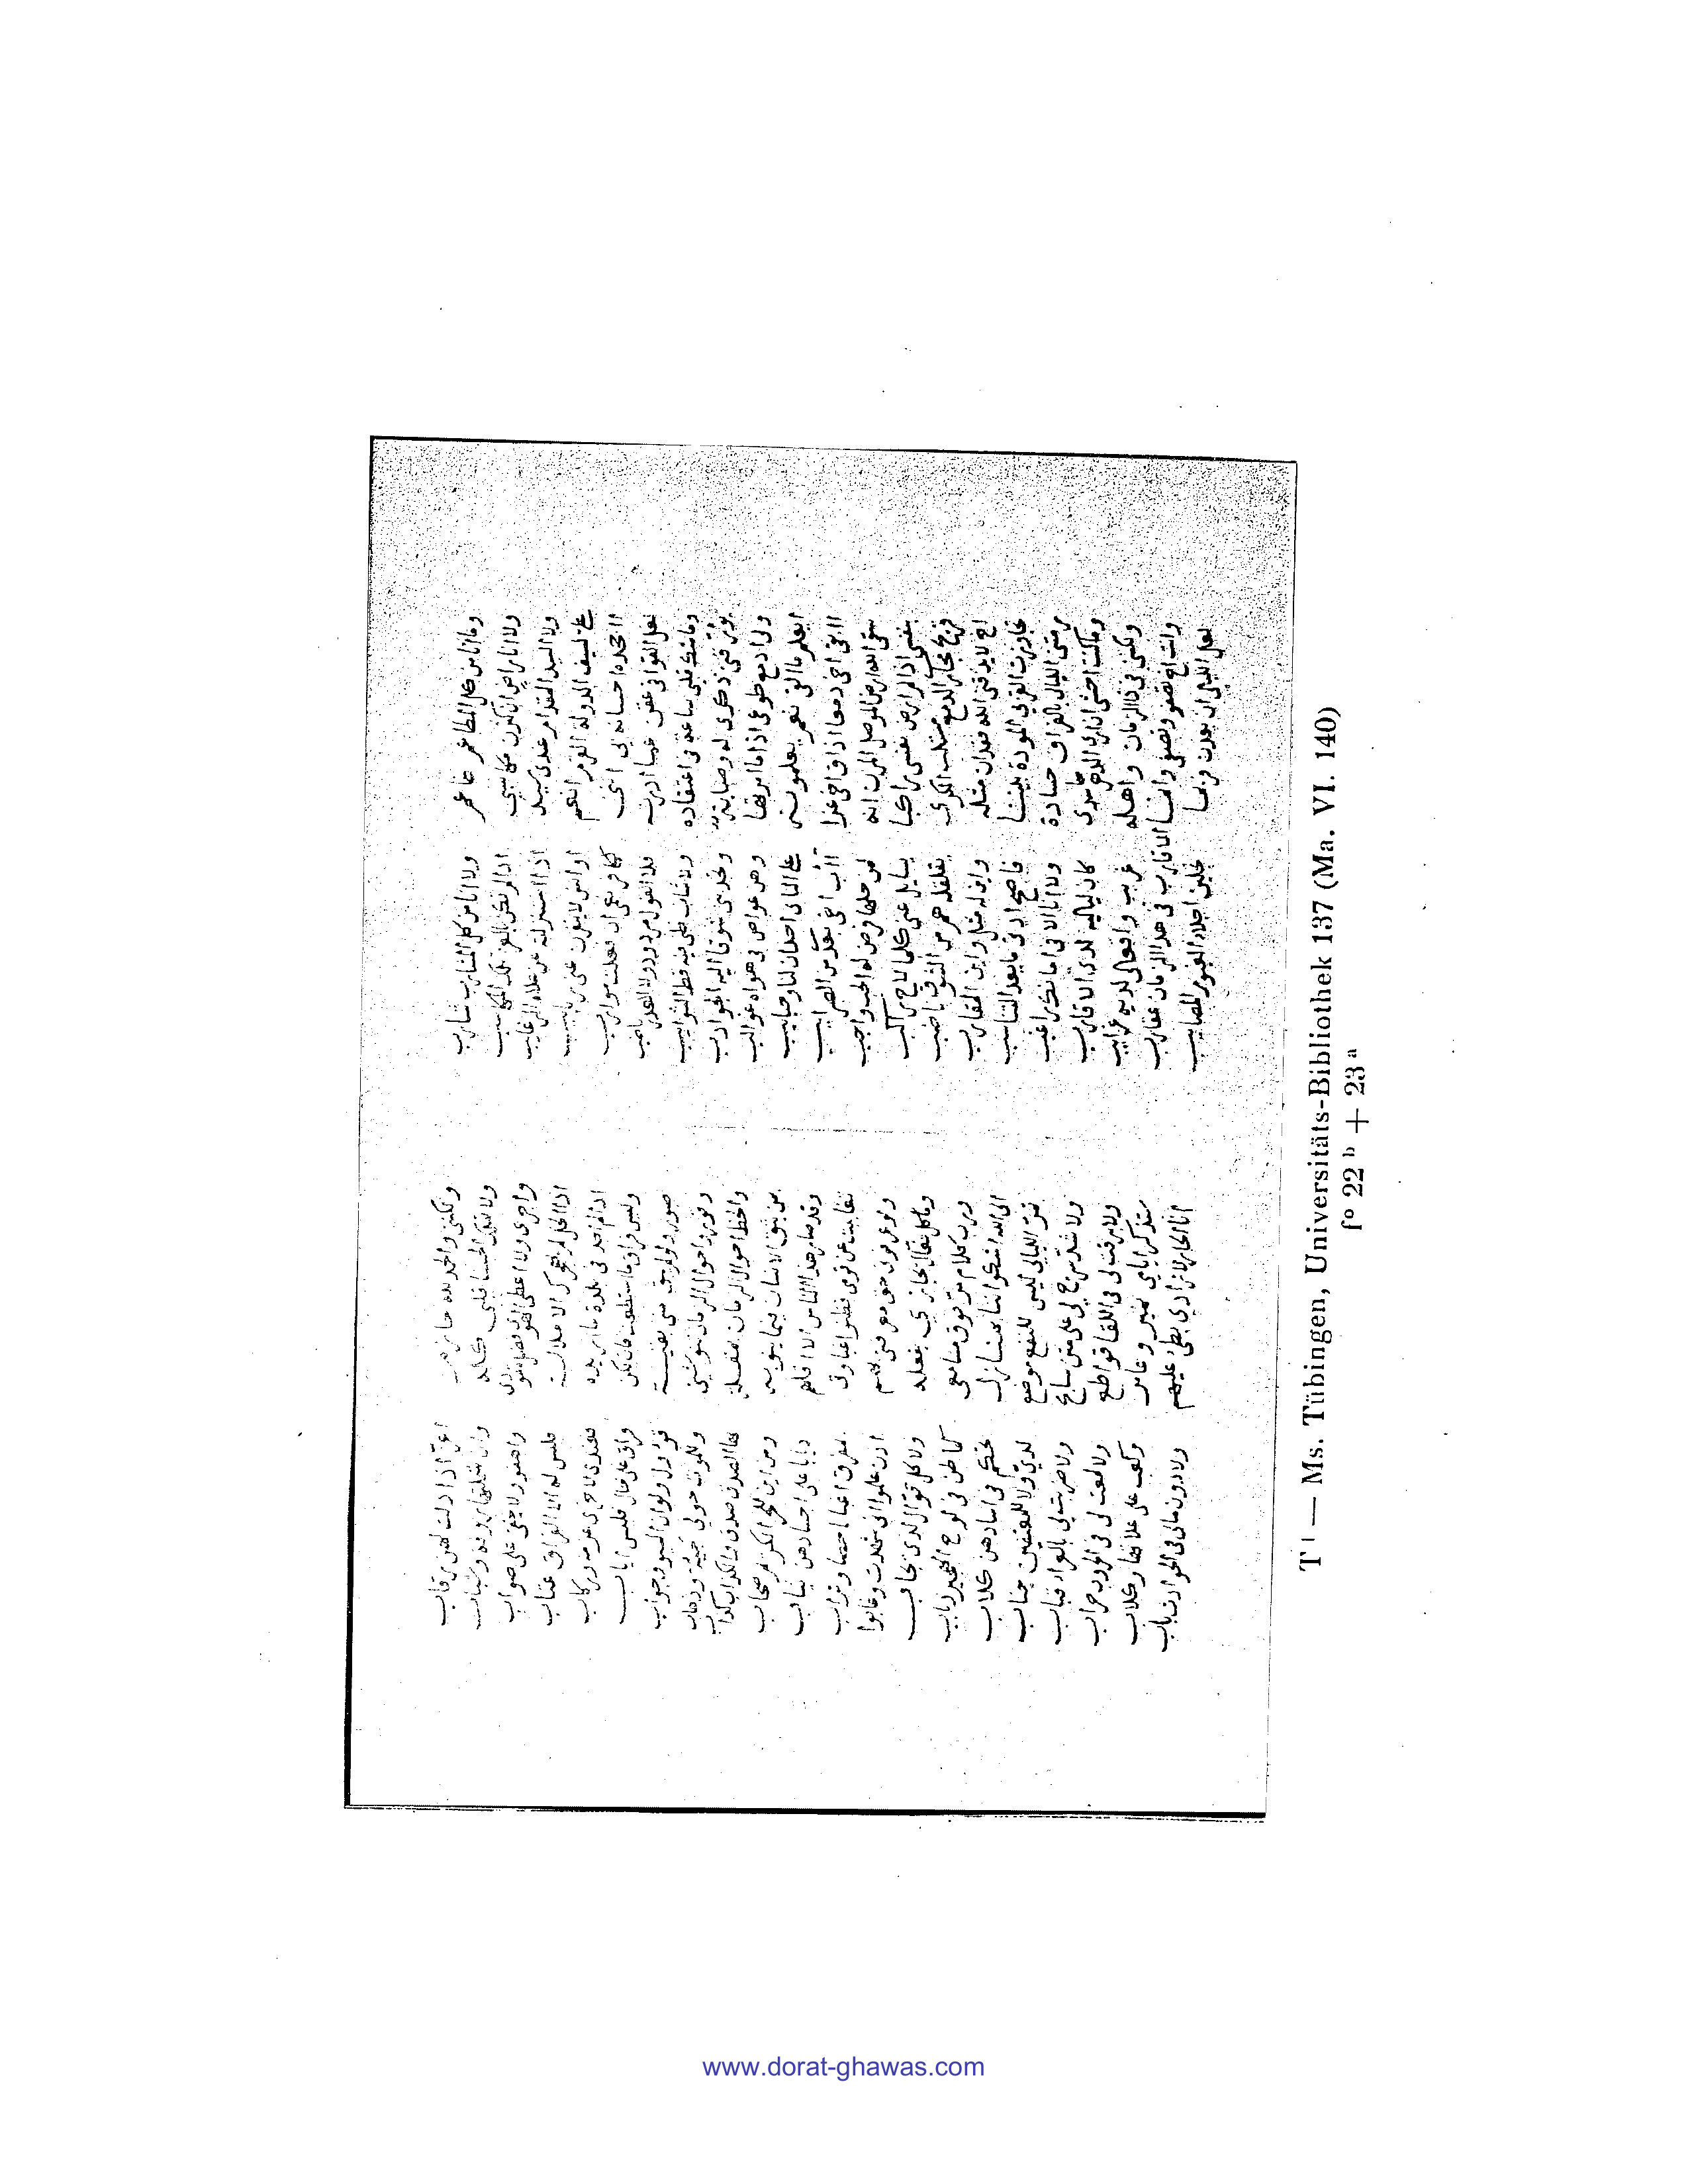 وما انا من كل المطاعم طاعم ولا انا من كل المشارب شارب
ولا انا راض ان كثرن مكاسبي اذا لم تكن بالعز تلك المكاسب
ولا السيد القمقام عندي بسيد اذا استنزلته عن علاه الرغايب
علي لسيف الدولة القرم انعم اوانس لا ينفرن عني ربايب
ااجحده احسانه بي انني لكافر نعمى ان فعلت موارب
لعل القوافي عقن عما اردت فلا القول مردود ولا العذر ناضب
وما شك قلبي ساعة في اعتقاده ولا شاب ظني فيه قط الشوايب
يؤرقني ذكرى له وصبابة وتجذبني شوقا اليه الجواذب
ولي ادمع طوعى اذا ما امرتها وهن عواص في هواه غوالب
ايعلم ما القى نعم يعلمونه على الناى احباب لنا وحبايب
اابقى اخي دمعا اذاق اخي عزا اآب اخي بعدي من الصبر ايب
سقى الله ارض الموصل المزن انه لمن حلها فرض له الحب واجب
بنفسي اذا لم ارض نفسي راكبا يسايل عني كلما لاح راكب
قريح مجاري الدمع مستلب الكرى يقلقله هم من الشوق ناصب
اخ لا يذقني الله فقدان مثله واين له مثل واين المقارب
تجاوزت القربى المودة بيننا فاصبح ادنى ما يعد التناسب
رمتني الليالي بالفراق حسادة ولا انا الا في راغب
وما كنت اخشى ان ارى الدهر حاسدي كان لياليه لدي الاقارب
ولكنني في ذا الزمان واهله غريب وافعالي لديه غرايب
وانت اخ تصفو وتصفى وانما الاقارب في هذا الزمان عقارب
لعل الليالي ان يعدن فربما تجلين اجلاء الغيوم المصايب
ولكنني والحمد لله حازم اعز اذا ذلت لهن رقاب
ولا تملك الحسنا قلبي كله وان شملتها رقة وشباب
واجري ولا اعطي الهوى فضل مقودي واهفو ولا يخفى علي صواب
اذا الخل لم يهجرك الا ملالة فليس له الا الفراق عتاب
اذا لم اجد في بلدة ما اريده فعندي لاخرى عزمة وركاب
وليس فراق ما استطعت فان يكن فراق على حال فليس اياب
صبور ولو لم يبق مني بقية قؤول ولو ان السيوف جواب
وقور واحوال الزمان تنوشني وللموت حولي جيئة وذهاب
والحظ احوال الزمان بمقلة بها الصدق صدق والكذاب كذاب
بمن يثق الانسان فيما ينوبه ومن اين للحر الكريم صحاب
وقد صار هذا الناس الا اقلهم ذيابا على اجسادهن ثياب
تغابيت عن قوى فظنوا غباوتي بمفرق اغبانا حصا وتراب
ولو عرفوني حق معرفتي بهم اذن علموا اني شهدت وغابوا
وما كل فعال يجازي بفعله ولا كل قوال لدي يجاب
ورب كلام مر فوق مسامعي كما طن في لوح الهجير ذباب
الى الله اشكو اننا بمنازل تحكم في اسادهن كلاب
تمر الليالي ليس للنفع موضع لدي ولا للمعتفين جناب
ولا شد لي سرج على متن سابح ولا ضربت لي بالعراء قباب
ولا برقت لي في اللقا قواطع ولا لمعت لي في الحروب حراب
ستذكر ايامي نمير وعامر وكعب على علاتها وكلاب
انا الجار لا زادي بطيء عليهم ولا دون مالي في الحوادث باب
T¹ — Ms. Tübingen, Universitäts-Bibliothek 137 (Ma. VI. 140)
fº 22 b + 23 a
www.dorat-ghawas.com